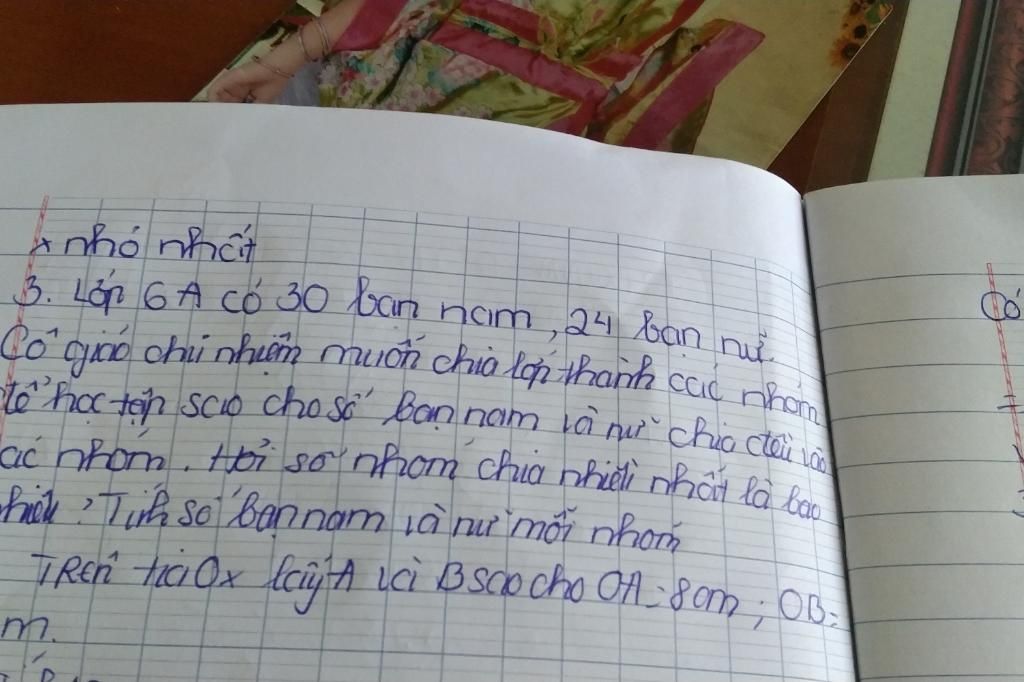 x nhỏ nhất
3. Lớp 6A có 30 bạn nam, 24 bạn nữ.
Cô giáo chủ nhiệm muốn chia lớp thành các nhóm
tổ học tập sao cho số bạn nam và nữ chia đều vào
ác nhóm. Hỏi số nhóm chia nhiều nhất là bao
nhiêu? Tính số bạn nam và nữ mỗi nhóm
TRên tia Ox lấy A và B sao cho OA = 8cm; OB=
m.
Có